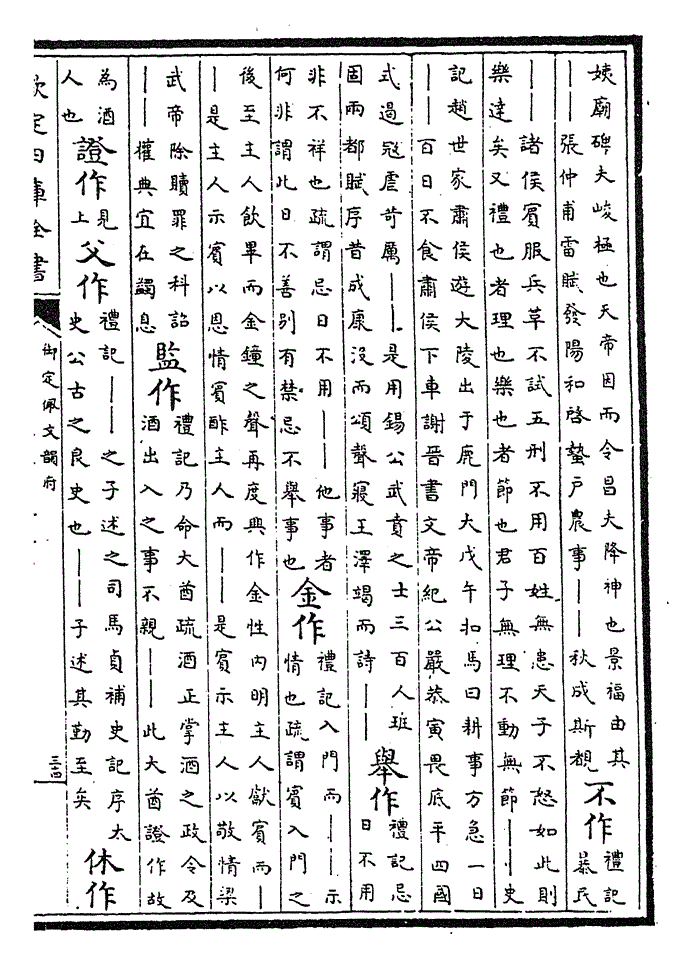 姨廟碑夫峻極也天帝因而令昌夫降神也景福由其
丨丨張仲甫雷賦發陽和啓蟄戶農事丨丨秋成斯覩
不作
禮記
暴民
丨丨諸侯賓服兵革不試五刑不用百姓無患天子不怒如此則
樂達矣又禮也者理也樂也者節也君子無理不動無節丨丨史
記趙世家肅侯遊大陵出于鹿門大戊午扣馬曰耕事方急一日
丨丨百日不食肅侯下車謝晉書文帝紀公嚴恭寅畏底平四國
式遏寇虐苛厲丨丨是用錫公武賁之士三百人班
固兩都賦序昔成康沒而頌聲寢王澤竭而詩丨丨
舉作
禮記忌
日不用
非不祥也疏謂忌日不用丨丨他事者
何非謂此日不善別有禁忌不舉事也
金作
禮記入門而丨丨示
情也疏謂賓入門之
後至主人飲畢而金鐘之聲再度興作金性內明主人獻賓而丨
丨是主人示賓以恩情賓酢主人而丨丨是賓示主人以敬情梁
武帝除贖罪之科詔
丨丨權典宜在蠲息
監作
禮記乃命大酋疏酒正掌酒之政令及
酒出入之事不親丨丨此大酋證作故
為酒
人也
證作
見
上
父作
禮記丨丨之子述之司馬貞補史記序太
史公古之良史也丨丨子述其勤至矣
休作
欽定四庫全書
御定佩文韻府
三十四